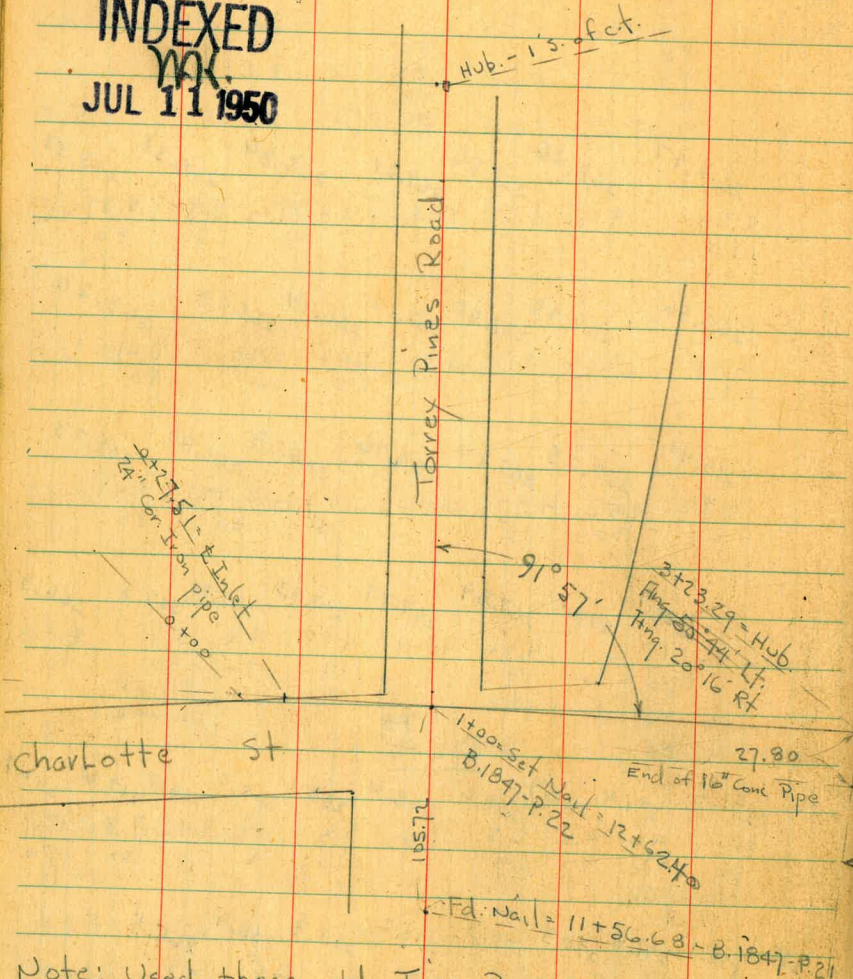 INDEXED
JUL 11 1950
Hub. - 1's. of c.t.
Torrey Pines Road
0+27.51 = ₵ Inlet
24" Cor. Iron pipe
0+00
91° 57'
3+23.29 = Hub.
Ang. 50°44' Lt.
Ang. 20°16' Rt.
Charlotte St
1+00 = Set Nail = 12+62.40
B.1847-P.22
27.80
End of 16" Conc Pipe
105.72
Fd. Nail = 11+56.68 - B.1847-P.21
Note: Used